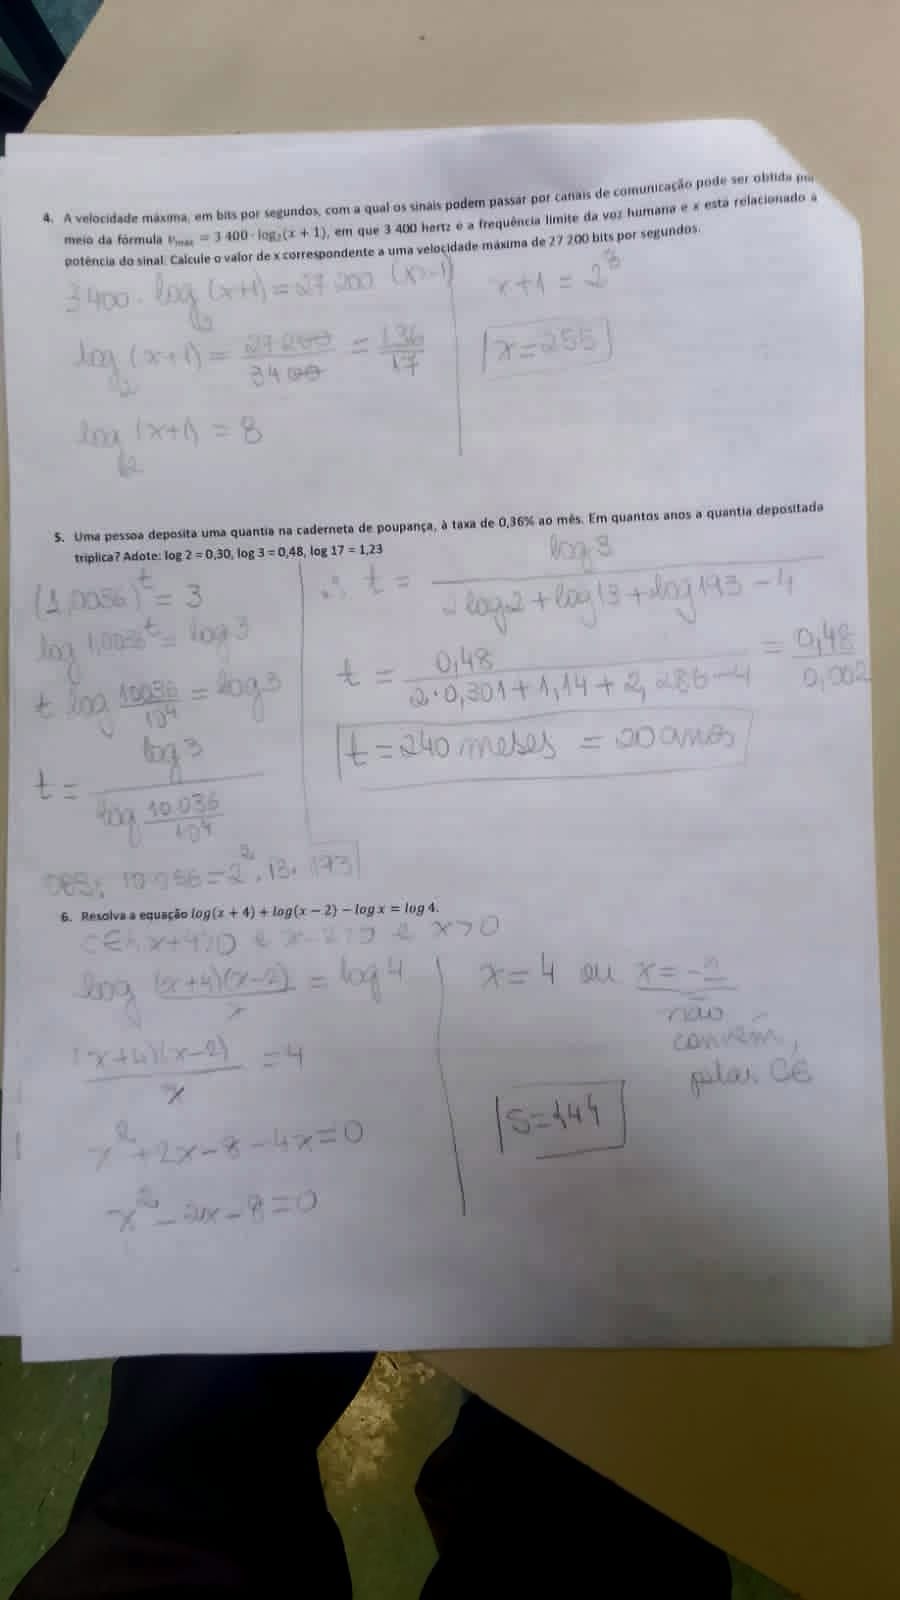 4. A velocidade máxima, em bits por segundos, com a qual os sinais podem passar por canais de comunicação pode ser obtida por
meio da fórmula vmax = 3 400 · log₂(x + 1), em que 3 400 hertz é a frequência limite da voz humana e x está relacionado à
potência do sinal. Calcule o valor de x correspondente a uma velocidade máxima de 27 200 bits por segundos.
3400 · log₂(x+1) = 27 200
log₂(x+1) = 27 200/34 00 = 136/17
log₂(x+1) = 8
x+1 = 2⁸
x = 255
5. Uma pessoa deposita uma quantia na caderneta de poupança, à taxa de 0,36% ao mês. Em quantos anos a quantia depositada
triplica? Adote: log 2 = 0,30, log 3 = 0,48, log 17 = 1,23
(1,0036)^t = 3
log 1,0036^t = log 3
t log 10036/10⁴ = log 3
t = log 3/log 10.036/10⁴
OBS: 10 036 = 2² · 13 · 193
∴ t = log 3/2log2 + log13 + log193 - 4
t = 0,48/2·0,301 + 1,14 + 2,286 - 4 = 0,48/0,002
t = 240 meses = 20 anos
6. Resolva a equação log(x + 4) + log(x − 2) − log x = log 4.
CE: x+4>0 e x-2>0 e x>0
log (x+4)(x-2)/x = log 4
(x+4)(x-2)/x = 4
x² + 2x - 8 - 4x = 0
x² - 2x - 8 = 0
x = 4 ou x = -2
não
convém,
pelas CE
S = {4}